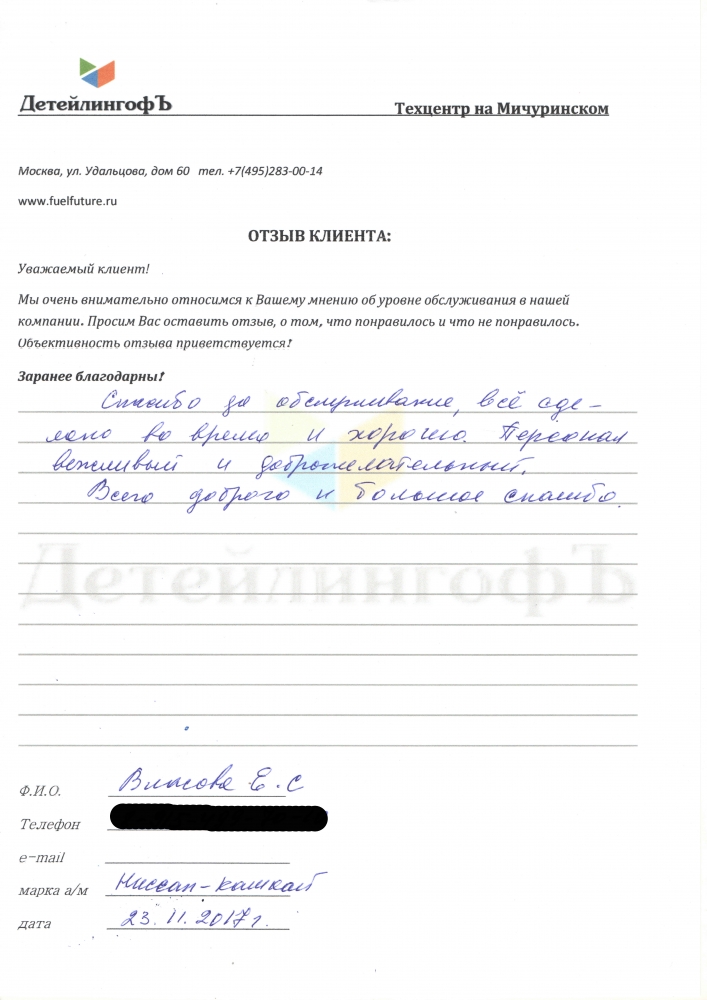 ДетейлингофЪ
Техцентр на Мичуринском
Москва, ул. Удальцова, дом 60 тел. +7(495)283-00-14
www.fuelfuture.ru
ОТЗЫВ КЛИЕНТА:
Уважаемый клиент!
Мы очень внимательно относимся к Вашему мнению об уровне обслуживания в нашей
компании. Просим Вас оставить отзыв, о том, что понравилось и что не понравилось.
Объективность отзыва приветствуется!
Заранее благодарны!
Спасибо за обслуживание, всё сде-
лано во время и хорошо. Персонал
вежливый и доброжелательный.
Всего доброго и большое спасибо.
ДетейлингофЪ
Ф.И.О. Власова Е.С
Телефон
e-mail
марка а/м Ниссан-кашкай
дата 23.11.2017г.